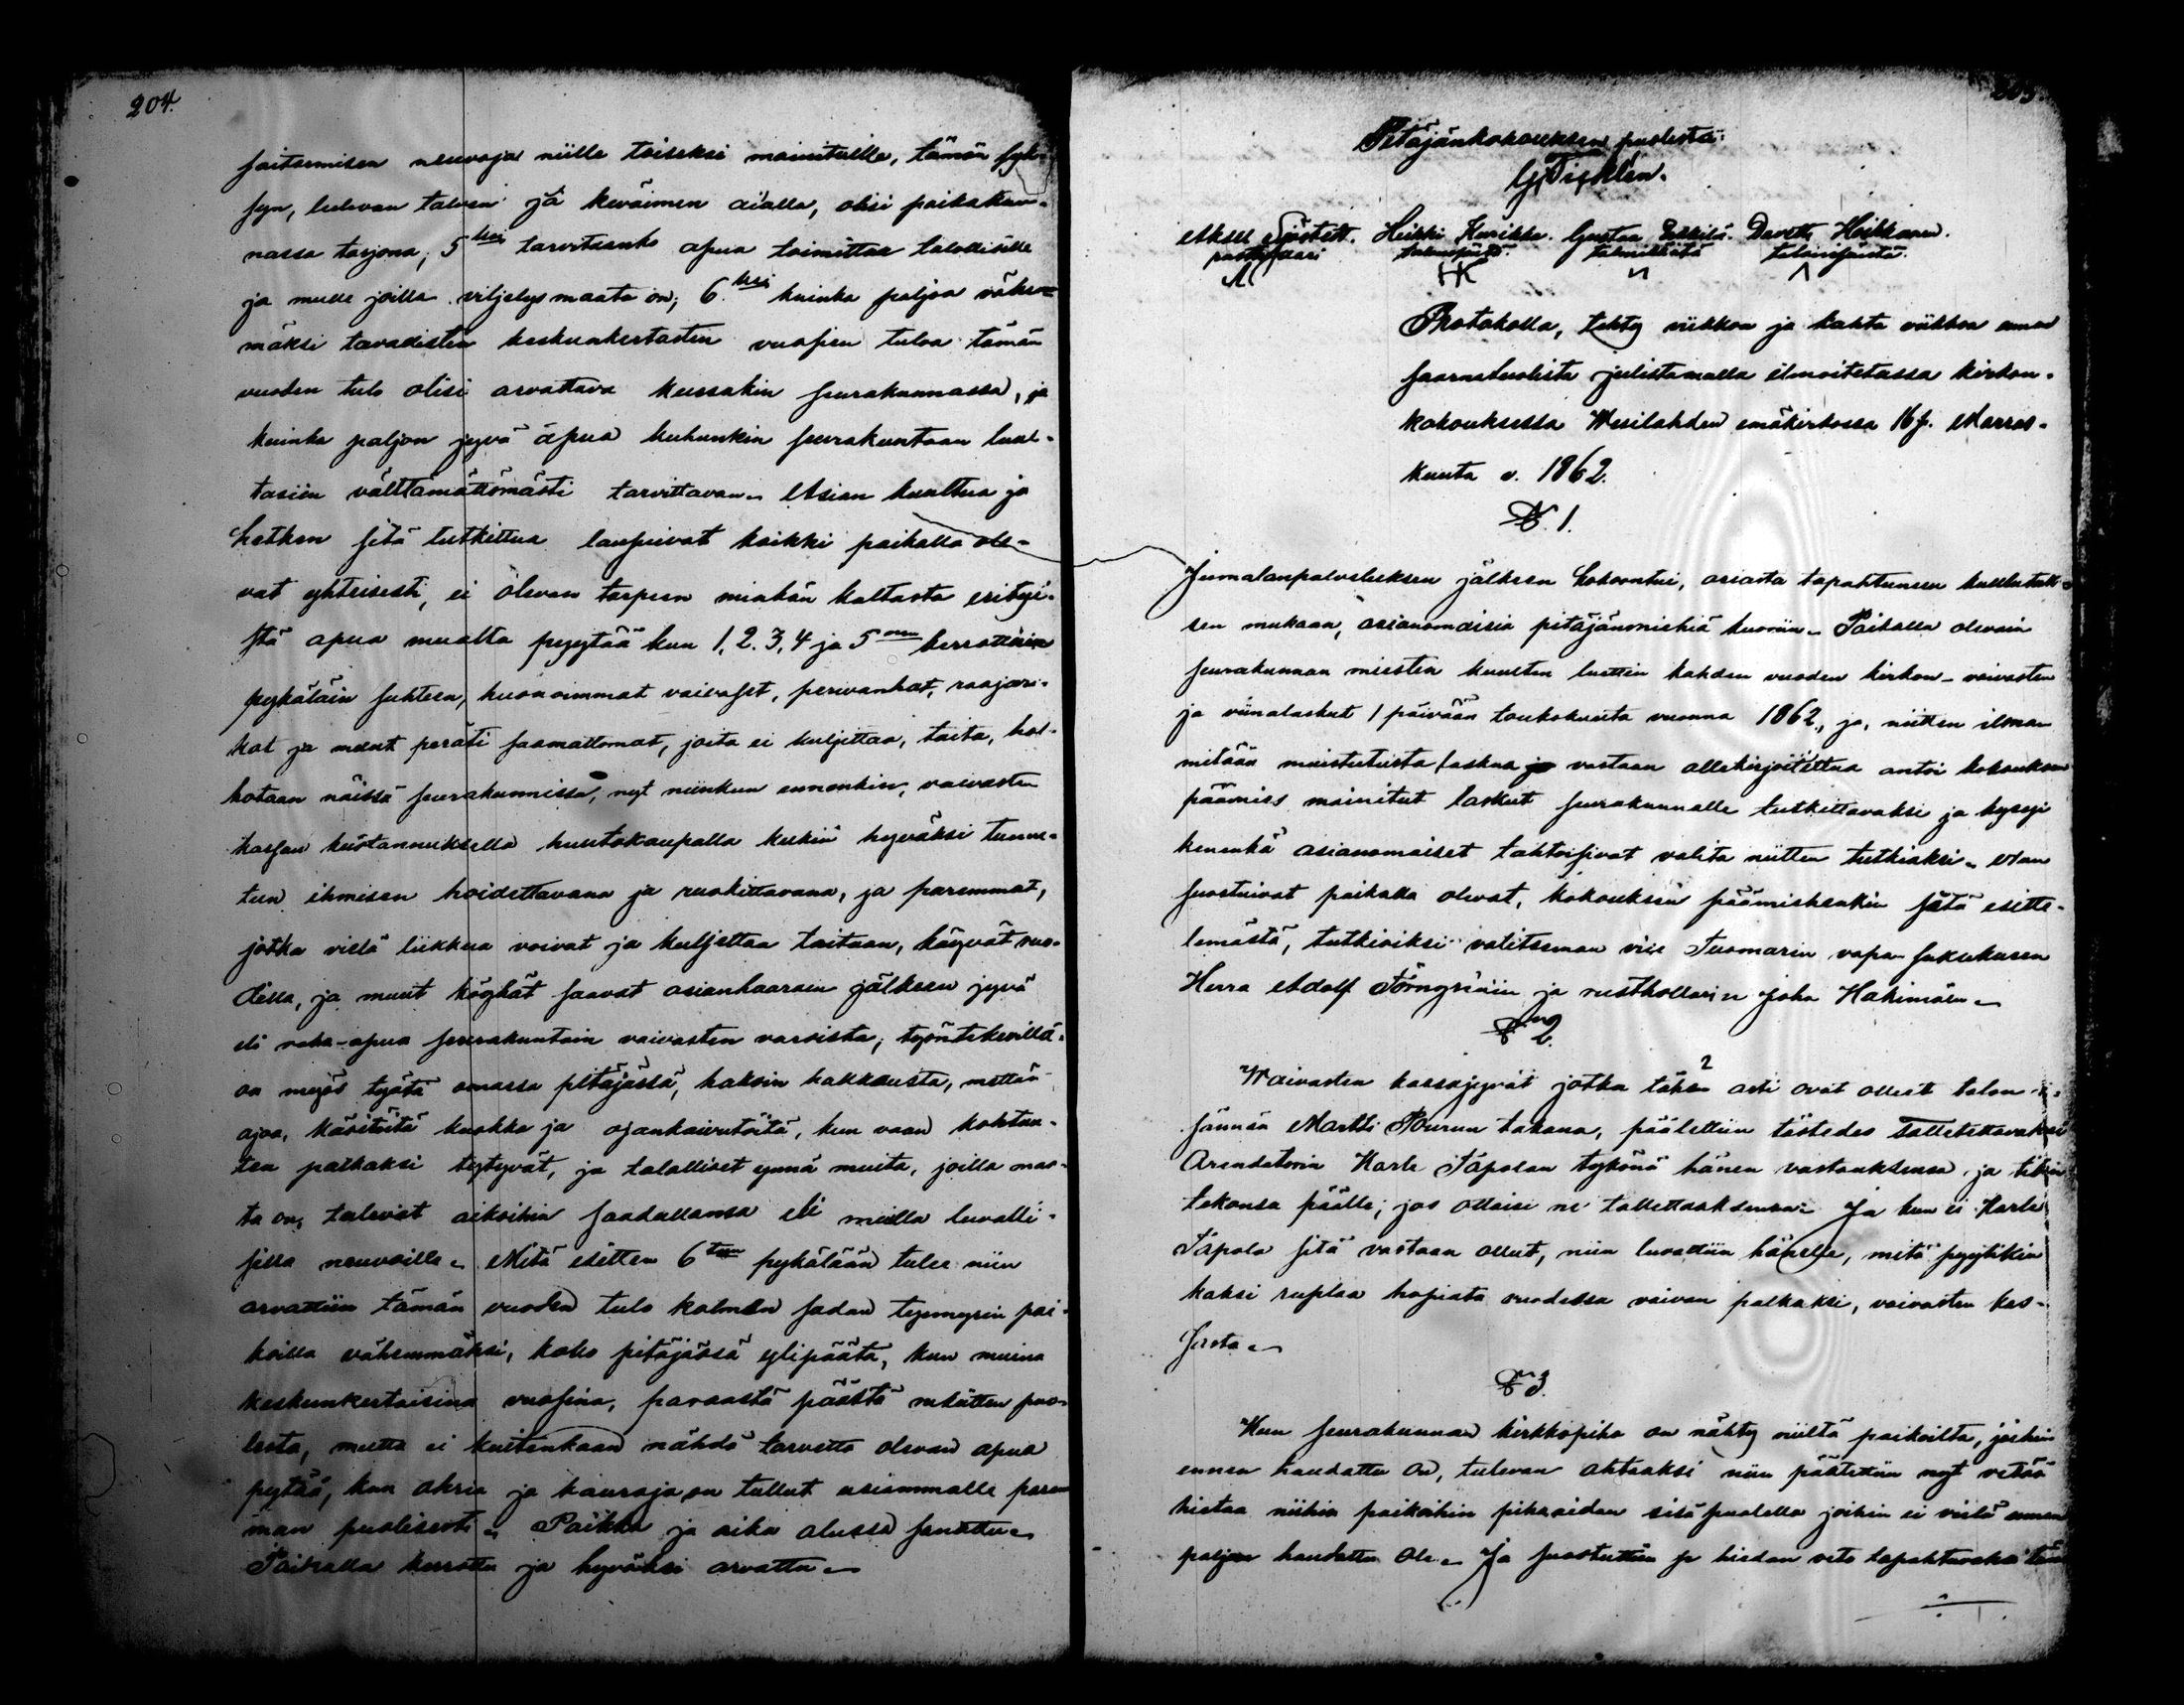 204.
saitsemisen neuvoja niille toiseksi mainituille, tämän syk-
syn, tulevan talven ja keväimen aialla, olisi paikakun-
nassa tarjona; 5ksi tarvitaanko apua toimittaa talollisille
ja muille joilla viljelysmaata on; 6ksi kuinka paljoa vähem-
mäksi tavallisten keskunkertasten vuosien tuloa tämän
vuoden tulo olisi arvattava kussakin seurakunnassa, ja
kuinka paljon jyvä apua kuhunkin seurakuntaan luul-
tasiin välttämättömästi tarvittavan. Asian kuultua ja
hetken sitä tutkittua lausuivat kaikki paikalla ole-
vat yhteisesti, ei olevan tarpeen minkän kaltasta erityi-
stä apua muualta pyytää kun 1, 2. 3, 4 ja 5nen kerrottuin
pykäläin suhteen, huonoimmat vaivaset, perivanhat, raajari-
kot ja muut peräti saamattomat, joita ei kuljettaa, taita, hol-
hotaan näissä seurakunnissa, nyt niinkun ennenkin, vaivasten
kassan kustannuksella huutokaupalla kukin hyväksi tunne-
tun ihmisen hoidettavana ja ruokittavana, ja paremmat,
jotka vielä liikkua voivat ja kuljettaa taitaan, käyvät ruo-
dilla, ja muut köyhät saavat asianhaarain jälkeen jyvä
eli raha-apua seurakuntain vaivasten varoista; työntekevillä
on myös työtä omassa pitäjässä, haloin hakkausta, mettän
ajoa, käsitöitä kuokka ja ojankaivutöitä, kun vaan kohtuu-
ten palkaksi tytyvät, ja talolliset ynnä muita, joilla maa-
ta on, tulevat aikoihin saadullansa eli muilla luvalli-
silla neuvoilla. Mitä esitten 6teen pykälään tulee niin
arvattiin tämän vuoden tulo kolmen sadan tynnyrin pai-
koilla vähemmäksi, koko pitäjässä ylipäätä, kun muina
keskunkertaisina vuosina, paraasta päästä rukiitten puo-
lesta, mutta ei kuitenkaan nähdä tarvetta olevan apua
pyytää, kun ohria ja kauroja on tullut usiammalle parem
man puolisesti. Paikka ja aika alussa sanottu.
Paikalla kerrottu ja hyväksi arvattu.
205.
Pitäjänkokouksen puolesta:
G. Ticklén.
Aksel Sjöstedt. Heikki Kurikka. Gustaa Eskilä. Daavetti Heikkanen.
rusthollari talonisäntä. talonisäntä talonisäntä.
HK
Protokolla, tehty viikkoa ja kahta viikkoa ennen
saarnatuolista julistamalla ilmoitetussa kirkon-
kokouksessa Wesilahden emäkirkossa 16 p. Marras-
kuuta v. 1862.
§. 1.
Jumalanpalveluksen jälkeen kokoontui, asiasta tapahtuneen kuulutuk-
sen mukaan, asianomaisia pitäjänmiehiä kuoriin. Paikalla olevain
seurakunnan miesten kuulten luettiin kahden vuoden kirkon- vaivasten
ja viinalaskut 1 päivään toukokuuta vuonna 1862, ja, niitten ilman
mitään muistutusta laskua vastaan allekirjoitettua antoi kokouksen
päämies mainitut laskut seurakunnalle tutkittavaksi ja kysyi
kenenkä asianomaiset tahtoisivat valita niitten tutkiaksi. Asian
suostuivat paikalla olevat, kokouksen päämiehenkin sitä esitte-
lemästä, tutkioiksi valitseman vice Tuomarin vapasukukusen
Herra Adolf Törngrenin ja rusthollarin Juha Hakimäen.
§ 2.
Waivasten kassajyvät jotka tähän asti ovat olleet talon i-
sännän Martti Pourun takana, päätettiin tästedes talletettavaksi
Arendatorin Karle Tapolan tykönä hänen vastauksensa ja tilin
tekonsa päälle; jos ottaisi ne tallettaaksensa. Ja kun ei Karle
Tapola sitä vastaan ollut, niin luvattiin hänelle, mitä pyytikin
kaksi ruplaa hopiata vuodessa vaivan palkaksi, vaivasten kas-
sasta.
§ 3.
Kun seurakunnan kirkkopiha on nähty niiltä paikoilta, joihin
ennen haudattu on, tulevan ahtaaksi niin päätettiin nyt vetää
hietaa niihin paikoihin pihaaidan sisäpuolella joihin ei vielä ennen
paljon haudattu ole. Ja suostuttiin se hiedan veto tapahtuvaksi